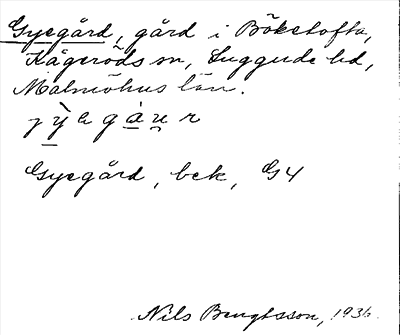 Gyegård, gård i Bökestofta,
Kågeröds sn, Luggude hd,
Malmöhus län.
Gyegård, bek, G4
Nils Bengtsson, 1936.